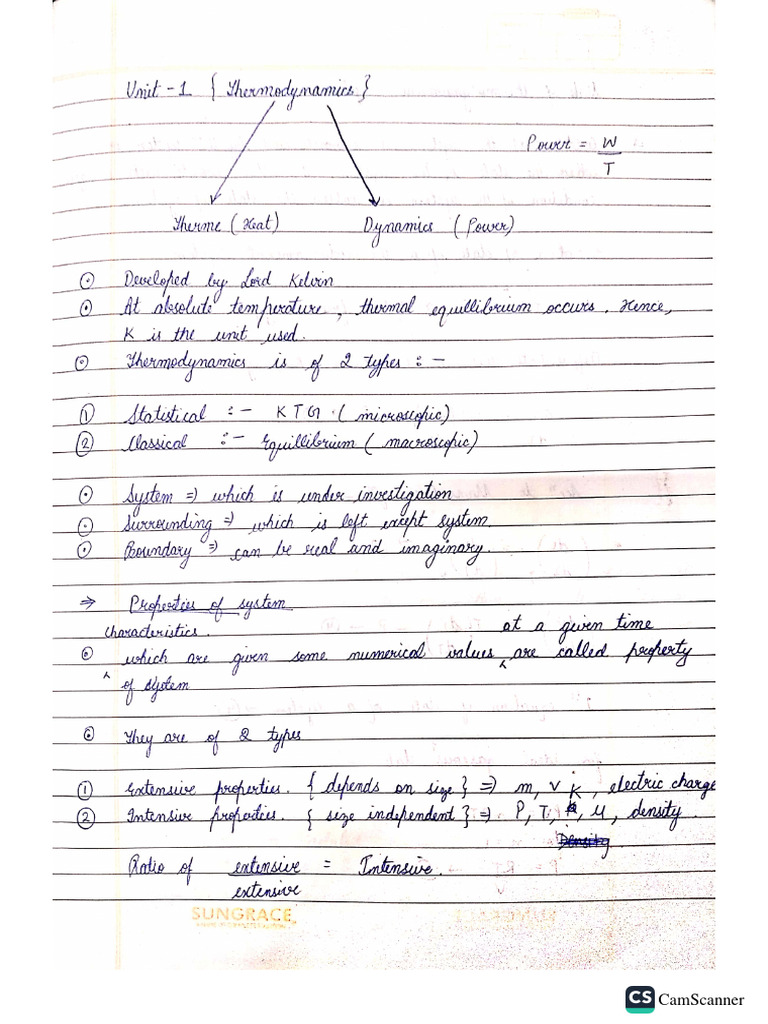 Unit - 1 { Thermodynamics }
Power = W
T
Therme (Heat) Dynamics (Power)
Developed by Lord Kelvin
At absolute temperature, thermal equillibrium occurs. Hence,
K is the unit used.
Thermodynamics is of 2 types :-
① Statistical :- KTG. (microscopic)
② Classical :- Equillibrium (macroscopic)
System => which is under investigation
Surrounding => which is left except system.
Boundary => can be real and imaginary.
=> Properties of system
characteristics. at a given time
which are given some numerical values are called property
of system
They are of 2 types
① Extensive properties. { depends on size } => m, v, k, electric charge
② Intensive properties. { size independent } => P, T, μ, density.
Density
Ratio of extensive = Intensive.
extensive
SUNGRACE
CS CamScanner